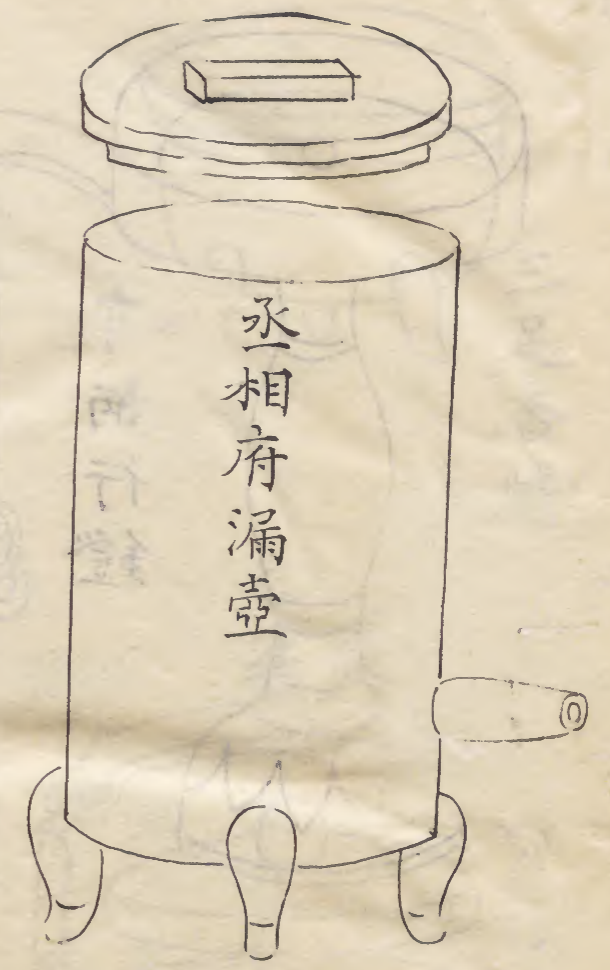 丞相府漏壺